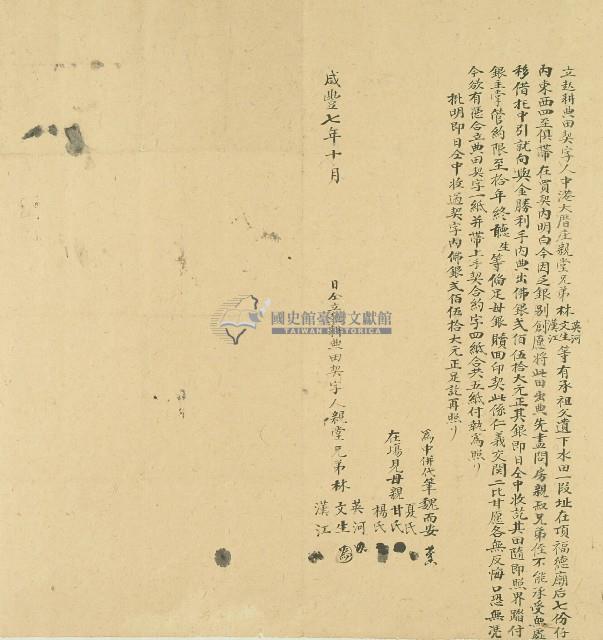 立起耕典田契字人中港大厝庄親堂兄弟林英河文生漢江等有承祖父遺下水田一段址在頂福德廟后七份仔
內東西四至俱帶在買契內明白今因乏銀別創愿將此田出典先盡問房親叔兄弟侄不能承受無處
移借托中引就向與金勝利手內典出佛銀弍佰伍拾大元正其銀即日仝中收訖其田隨即照界踏付
銀主掌管約限至拾年終聽生等備足母銀贖回印契此係仁義交関二比甘愿各無反悔口恐無憑
今欲有憑合立典田契字一紙并帶上手契合約字四紙合共五紙付執為照
批明即日仝中收過契字內佛銀弍佰伍拾大元正足訖再照
為中併代筆魏而安
在場見母親夏氏甘氏楊氏
咸豐七年十月 日仝立起耕典田契字人親堂兄弟林英河文生漢江
國史館臺灣文獻館
TAIWAN HISTORICA